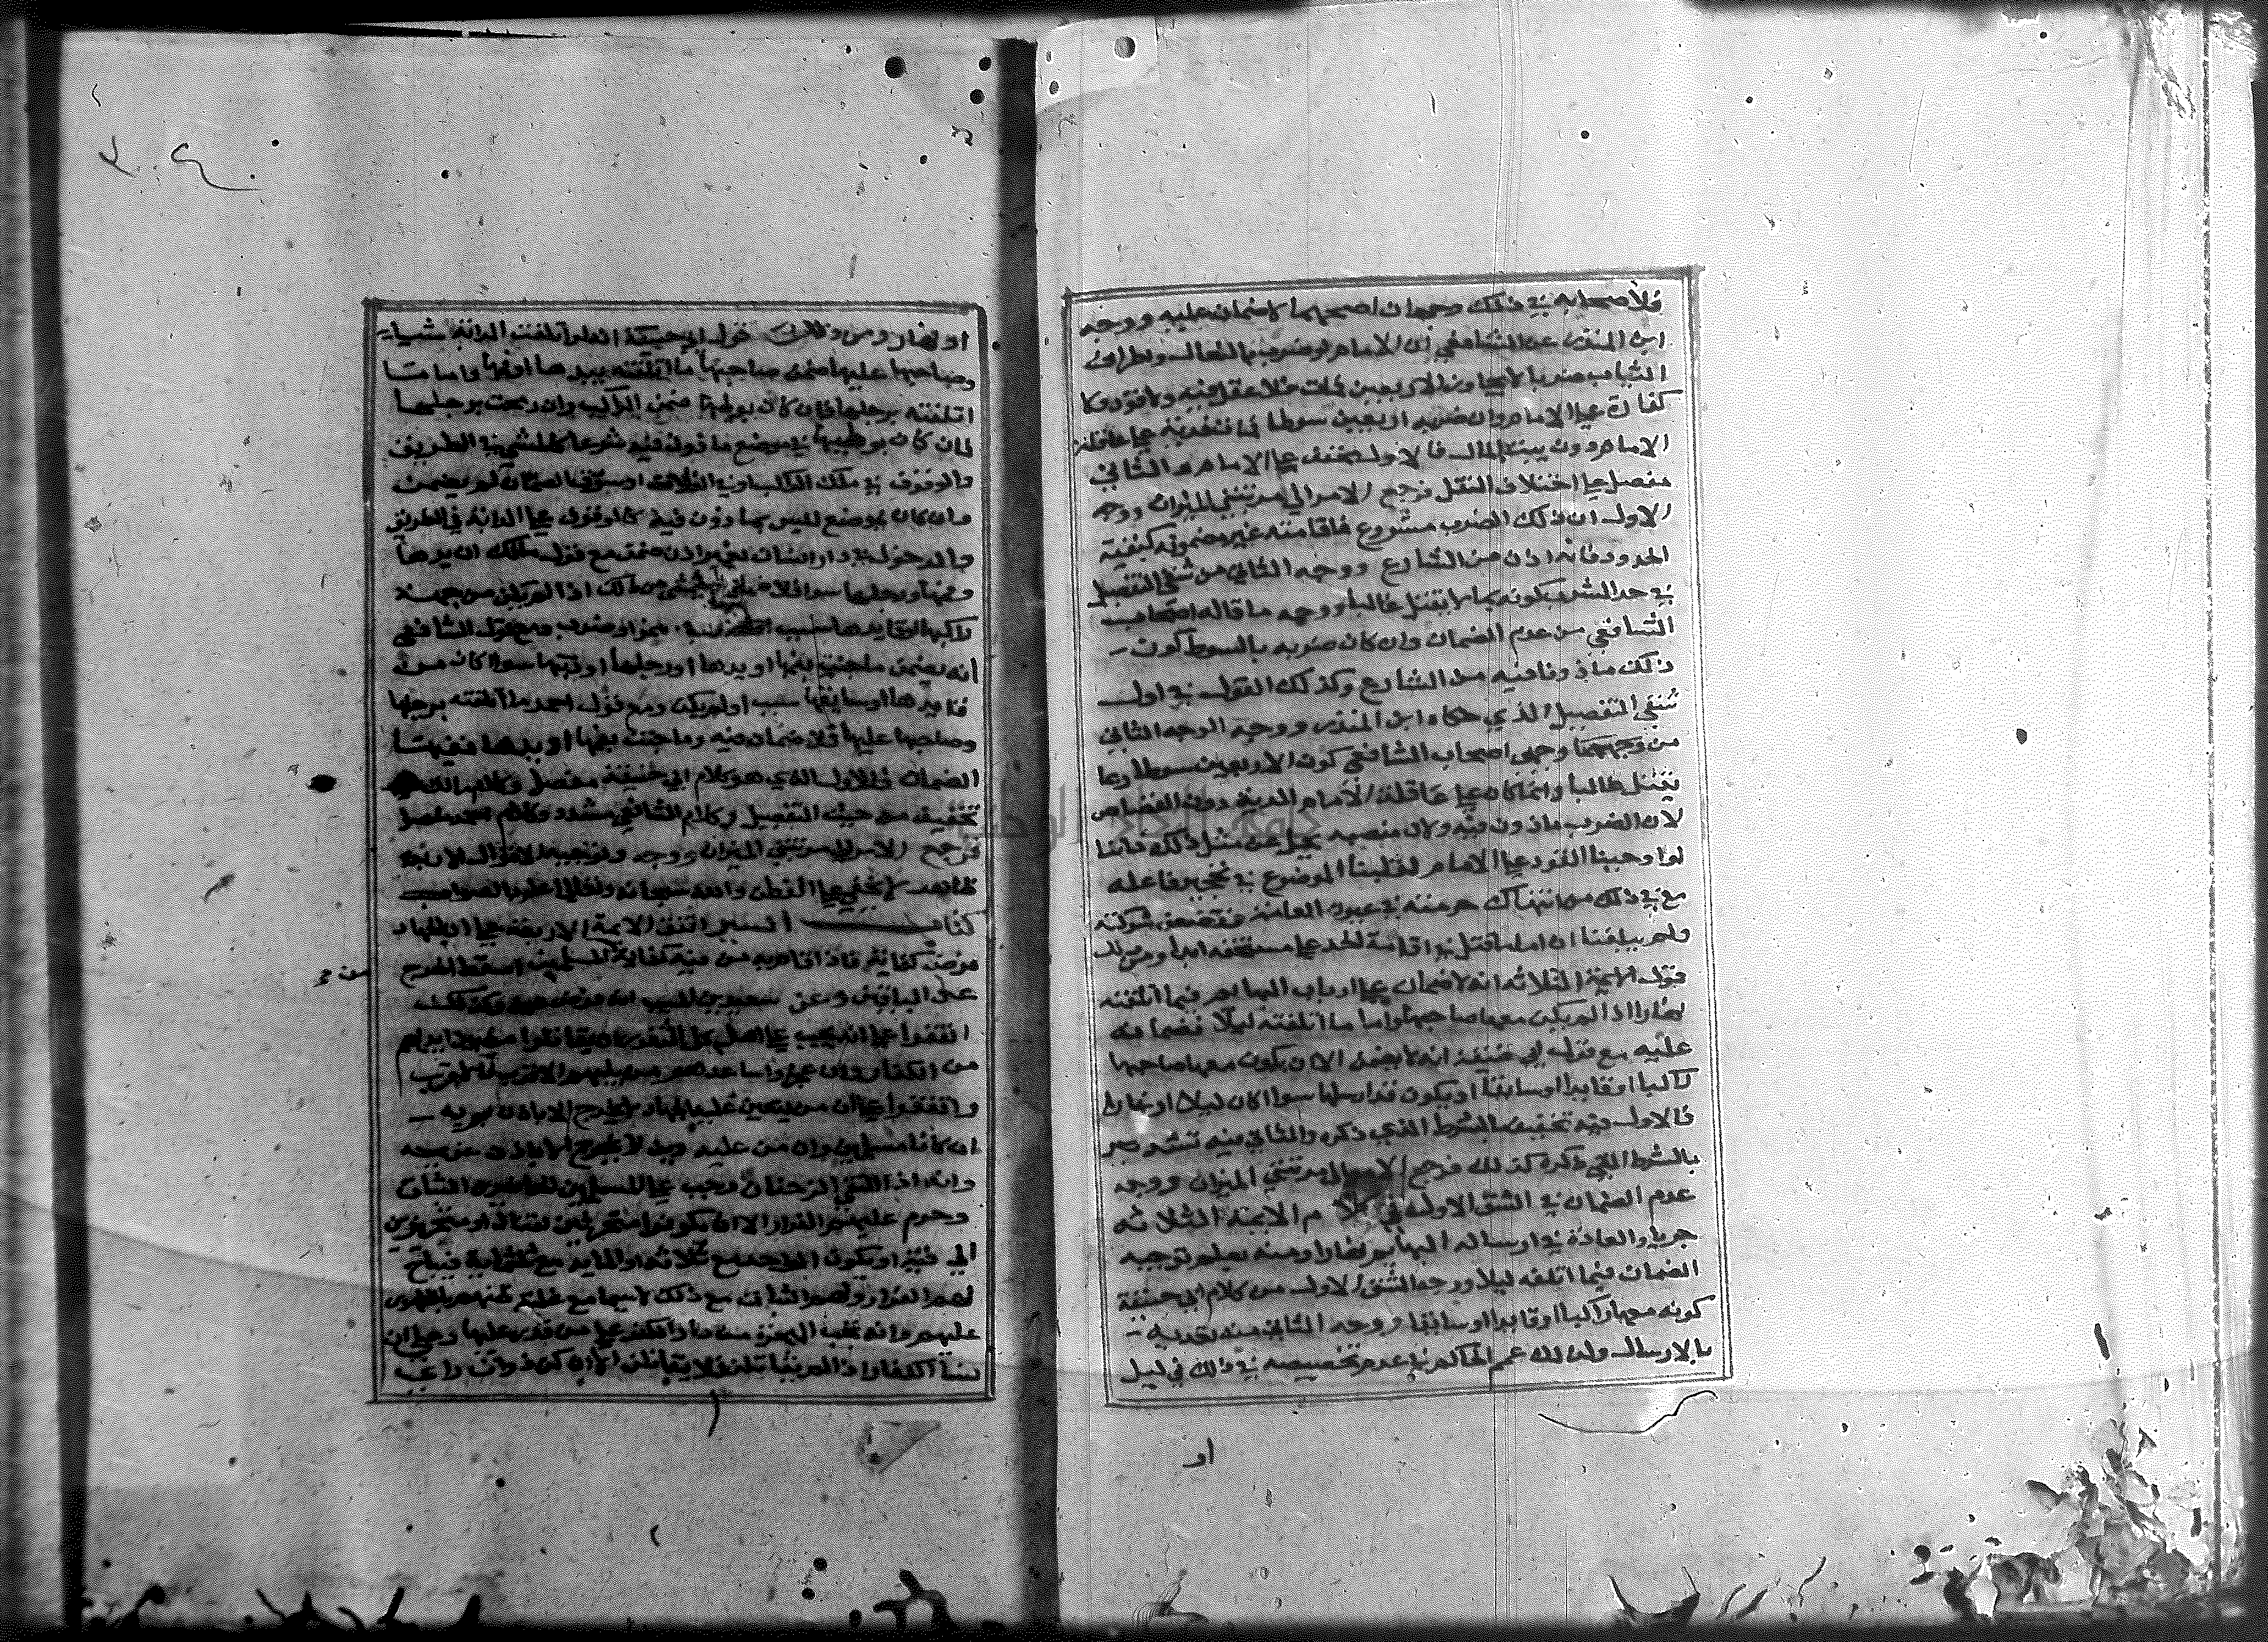 فلأصحابه في ذلك وجهان اصحهما لا ضمان عليه ووجه
ابن المنذر عن الشافعي ان الامام لو ضرب بالنعال وطراف
الثياب ضربا لا يجاوز الاربعين فمات فلا عقل فيه ولا قود ولا
كفارة على الامام وان ضربه اربعين سوطا فمات فديته على عاقلة
الامام دون بيت المال فالاول مخفف على الامام والثاني
مفصل على اختلاف النقل فرجع الامر الي مرتبتي الميزان ووجه
الاول ان ذلك الضرب مشروع فاقامته غير مضمونه كبقية
الحدود فانه اذن من الشارع ووجه الثاني من شقي التفصيل
في حد الشرب كونه بما لا يقتل غالبا ووجه ما قاله اصحاب
الشافعي من عدم الضمان وان كان ضربه بالسوط كون
ذلك ماذونا فيه من الشارع وكذلك القول في اول
شقي التفصيل الذي حكاه ابن المنذر ووجه الوجه الثاني
من وجهي اصحاب الشافعي كون الاربعين سوطا ربما
يقتل غالبا وانما كان على عاقلة الامام الدية دون القصاص
لان الضرب ماذون فيه ولان منصبه يجل عن مثل ذلك فاننا
لو اوجبنا القود على الامام لقلبنا الموضوع في تحجير فاعله
مع في ذلك من انتهاك حرمته في عيون العامة فتضعف شوكته
ولم يبلغنا ان اماما قتل في اقامة الحد على مستحقه ابدا ومن ذلك
قول الايمة الثلاثه انه لا ضمان على ارباب البهايم فيما اتلفته
نهارا اذا لم يكن معها صاحبها واما ما اتلفته ليلا فضمانه
عليه مع قول ابي حنيفة انه لا يضمن الا ان يكون معها صاحبها
راكبا او قايدا او سايقا او يكون قد ارسلها سوا كان ليلا او نهارا
فالاول فيه تخفيف بالشرط الذي ذكره والثاني فيه تشديد
بالشرط الذي ذكره كذلك فرجع الامر الي مرتبتي الميزان ووجه
عدم الضمان في الشق الاول في كلام الايمة الثلاثه
جريان العادة في ارسال البهايم نهارا ومنه يعلم توجيه
الضمان فيما اتلفه ليلا ووجه الشق الاول من كلام ابي حنيفة
كونه معها راكبا او قايدا او سايقا ووجه الثاني منه تعديه
بالارسال ولذلك عمم الحاكم في عدم تخصيصه في ذلك في ليل
او
او نهار ومن ذلك قول ابي حنيفة اتلفت الدابة شياء
وصاحبها عليها ضمن صاحبها ما اتلفته بيدها او فمها واما ما
اتلفته برجلها فان كان بوطئها ضمن الراكب وان رمحت برجلها
فان كان بوطئها في موضع ماذون فيه شرعا كالمشي في الطريق
والوقوف في ملك الراكب او في الفلاة او سوق لم يضمن
وان كان بموضع ليس بماذون فيه كالوقوف على الدابة في الطريق
والدخول في دار انسان بغير اذن ضمن مع قول مالك ان يدها
وفمها ورجلها سوا فلا ضمان من ذلك اذا لم يكن من جهة
راكبها او قايدها سبب من همز او ضرب ومع قول الشافعي
انه يضمن ما جنت بفمها او يدها او رجلها او ذنبها سوا كان من
قايدها او سايقها سبب او لم يكن ومع قول احمد ما اتلفته برجلها
وصاحبها عليها فلا ضمان فيه وما جنت بفمها او يدها ففيه
الضمان فالاول الذي هو كلام ابي حنيفة مفصل وكلام مالك
تخفيف من حيث التفصيل وكلام الشافعي مشدد وكلام احمد مفصل
فرجع الامر الي مرتبتي الميزان ووجه الاقوال الاربعة
ظاهر لا يخفي على الفطن والله سبحانه وتعالى اعلم بالصواب
كتاب السير اتفق الايمة الاربعة على ان الجهاد
فرض كفاية فاذا قام به من فيه كفاية من المسلمين سقط الحرج
عن الباقين وعن سعيد بن المسيب انه فرض عين وكذلك
اتفقوا على انه يجب على اهل كل ثغر ان يقاتلوا من بازايهم
من الكفار فان عجزوا ساعدهم من يليهم الاقرب فالاقرب
واتفقوا على ان من لم يتعين عليه الجهاد لا يخرج الا باذن ابويه
ان كانا مسلمين وان من عليه دين لا يخرج الا باذن غريمه
وانه اذا التقي الزحفان وجب على المسلمين الحاضرين الثبات
وحرم عليهم الفرار الا ان يكونوا متحرفين لقتال او متحيزين
الي فئة او يكون الواحد مع ثلاثه او الماية مع ثلثماية فيباح
لهم الفرار ولهم الثبات مع ذلك لا سيما مع غلبة ظنهم بالظهور
عليهم وانه تجب الهجرة من دار الكفر على من قدر عليها وعلى ان
نسا الكفار اذا لم يقاتلن فلا يقاتلن الا ان يكن ذوات راي